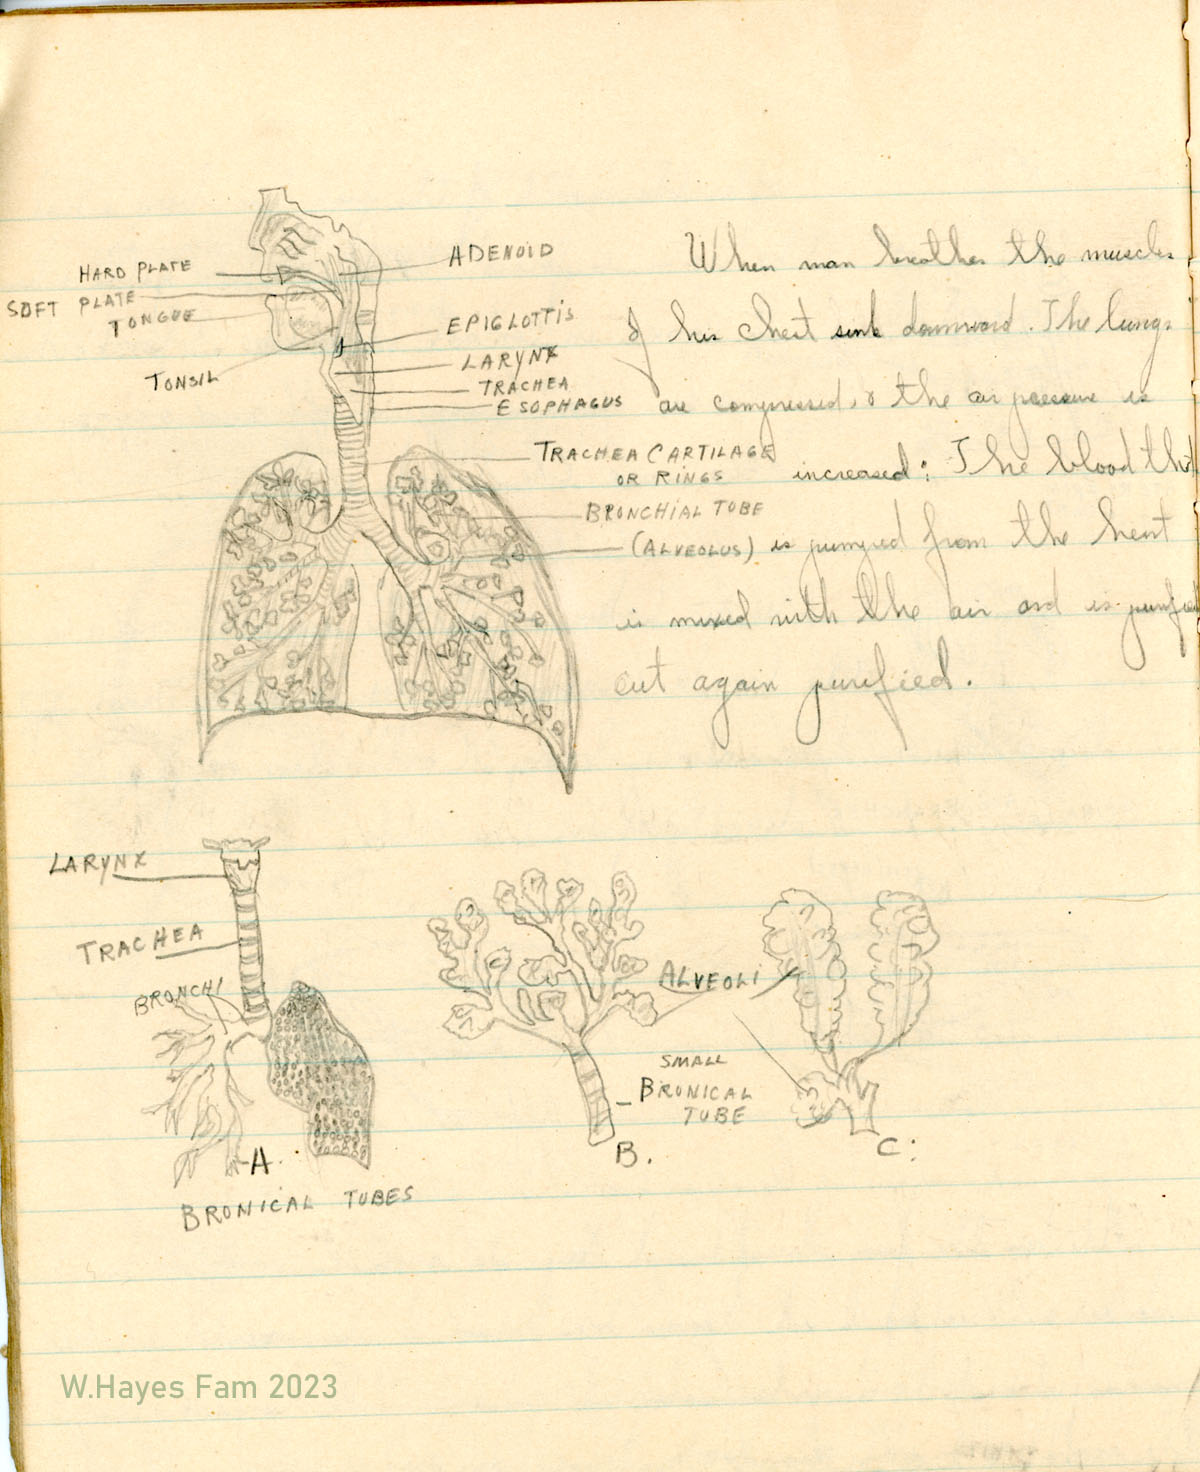 HARD PLATE
SOFT PLATE
TONGUE
TONSIL
ADENOID
EPIGLOTTIS
LARYNX
TRACHEA
ESOPHAGUS
TRACHEA CARTILAGE
OR RINGS
BRONCHIAL TUBE
(ALVEOLUS)
When man breathes the muscles
of his chest sink downward. The lungs
are compressed, & the air pressure is
increased: The blood that
is pumped from the heart
is mixed with the air and is
out again purified.
LARYNX
TRACHEA
BRONCHI
A.
BRONICAL TUBES
ALVEOLI
SMALL
BRONICAL
TUBE
B.
C:
W.Hayes Fam 2023